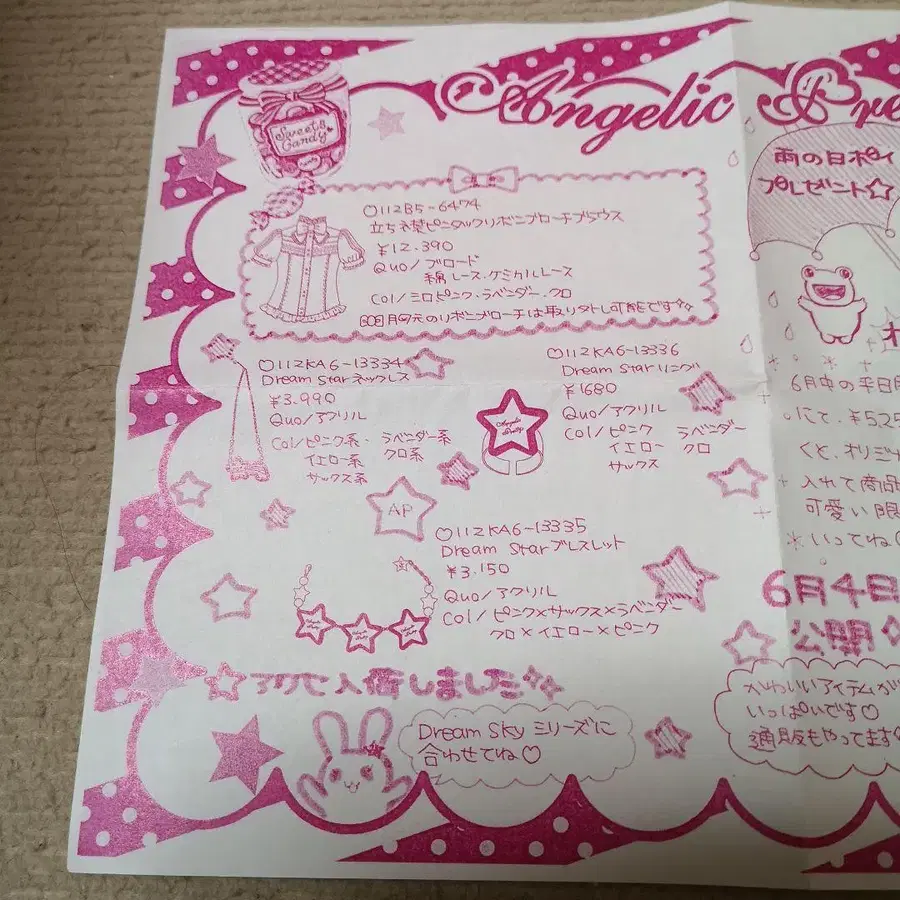 Angelic Pre
Sweets
Candy
〇112B5-6474
立ち衿ピンタックリボンブローチブラウス
¥12.390
Quo/ブロード
綿レース.ケミカルレース
Col/シロ.ピンク.ラベンダー.クロ
胸元のリボンブローチは取りハズし可能です
〇112KA6-13334
Dream Starネックレス
¥3.990
Quo/アクリル
Col/ピンク系・ラベンダー系
イエロー系 クロ系
サックス系
〇112KA6-13336
Dream Starリング
¥1680
Quo/アクリル
Col/ピンク ラベンダー
イエロー クロ
サックス
Angelic Pretty
AP
〇112KA6-13335
Dream Starブレスレット
¥3.150
Quo/アクリル
Col/ピンク×サックス×ラベンダー
クロ×イエロー×ピンク
☆アクセ入荷しました☆
Dream Sky シリーズに
合わせてね♡
雨の日ポイ
プレゼント☆
オ
6月中の平日
にて、¥5,25
くと、オリジナ
入れて商品
可愛い
いってね
6月4日
公開
かわいいアイテムが
いっぱいです♡
通販もやってます